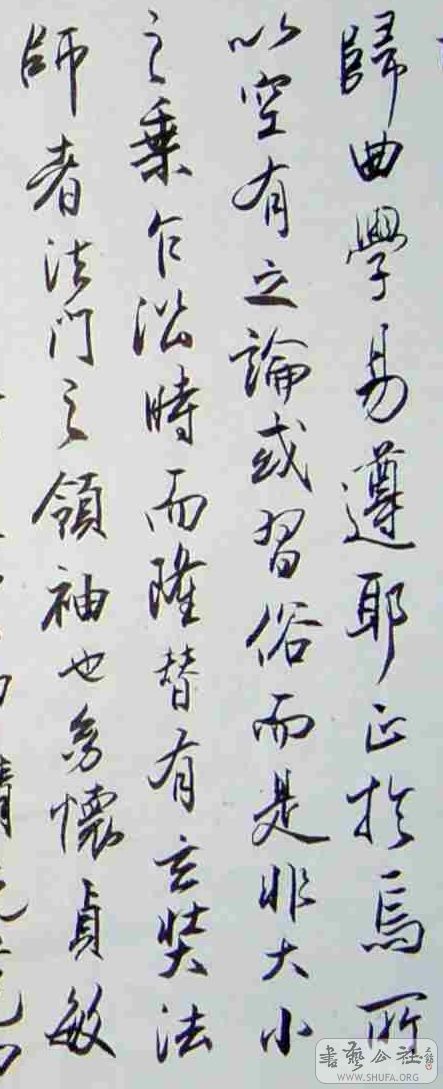 歸曲學易遵耶正於焉所
以空有之論或習俗而是非大小
之乘乍沿時而隆替有玄奘法
師者法門之領袖也幼懷貞敏
書藝公社
WWW.SHUFA.ORG